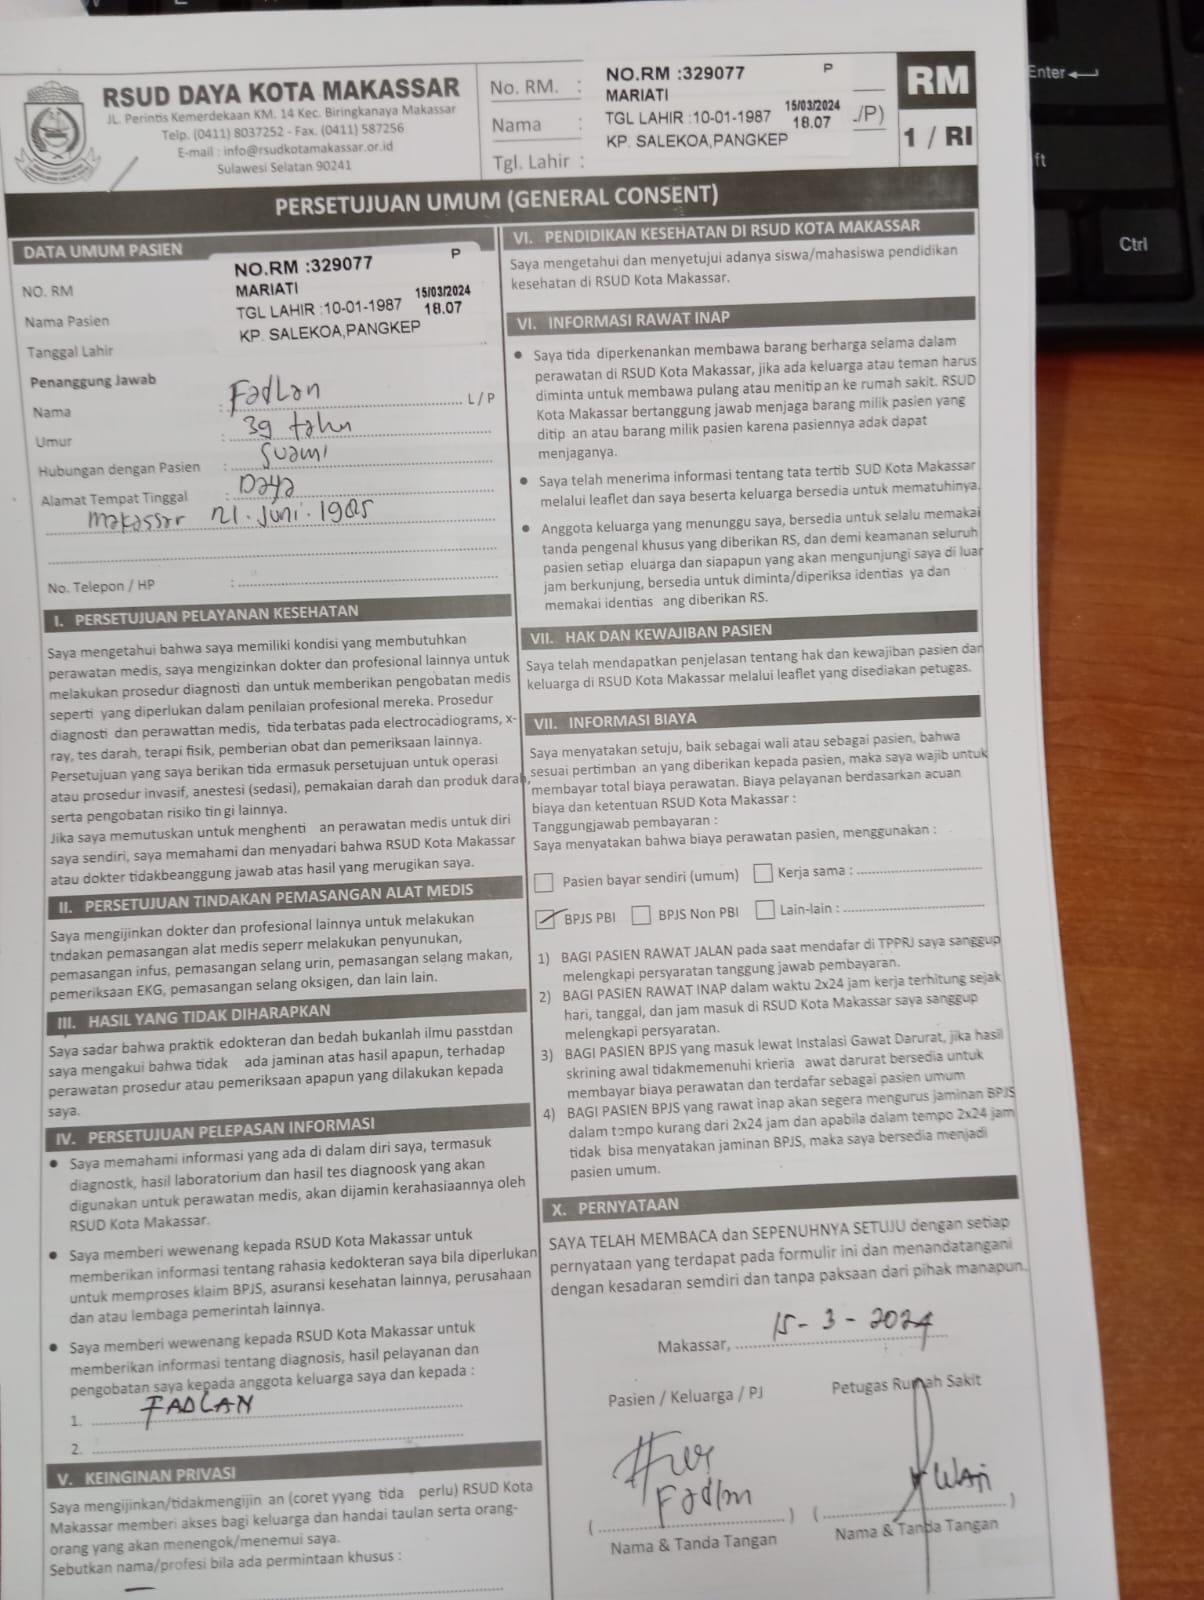 RSUD DAYA KOTA MAKASSAR
JL. Perintis Kemerdekaan KM. 14 Kec. Biringkanaya Makassar
Telp. (0411) 8037252 - Fax. (0411) 587256
E-mail : info@rsudkotamakassar.or.id
Sulawesi Selatan 90241
No. RM. :
Nama :
Tgl. Lahir :
NO.RM :329077 P
MARIATI
TGL LAHIR :10-01-1987 15/03/2024 18.07
KP. SALEKOA,PANGKEP
./P)
RM
1 / RI
PERSETUJUAN UMUM (GENERAL CONSENT)
DATA UMUM PASIEN
NO. RM
Nama Pasien
Tanggal Lahir
NO.RM :329077 P
MARIATI
TGL LAHIR :10-01-1987 15/03/2024 18.07
KP. SALEKOA,PANGKEP
Penanggung Jawab
Nama : Fadlan L / P
Umur : 39 tahun
Hubungan dengan Pasien : Suami
Alamat Tempat Tinggal : Daya
Makassar 21 . Juni . 1985
No. Telepon / HP :
I. PERSETUJUAN PELAYANAN KESEHATAN
Saya mengetahui bahwa saya memiliki kondisi yang membutuhkan
perawatan medis, saya mengizinkan dokter dan profesional lainnya untuk
melakukan prosedur diagnosti dan untuk memberikan pengobatan medis
seperti yang diperlukan dalam penilaian profesional mereka. Prosedur
diagnosti dan perawattan medis, tida terbatas pada electrocadiograms, x-
ray, tes darah, terapi fisik, pemberian obat dan pemeriksaan lainnya.
Persetujuan yang saya berikan tida ermasuk persetujuan untuk operasi
atau prosedur invasif, anestesi (sedasi), pemakaian darah dan produk darah,
serta pengobatan risiko tin gi lainnya.
Jika saya memutuskan untuk menghenti an perawatan medis untuk diri
saya sendiri, saya memahami dan menyadari bahwa RSUD Kota Makassar
atau dokter tidakbeanggung jawab atas hasil yang merugikan saya.
II. PERSETUJUAN TINDAKAN PEMASANGAN ALAT MEDIS
Saya mengijinkan dokter dan profesional lainnya untuk melakukan
tndakan pemasangan alat medis seperr melakukan penyunukan,
pemasangan infus, pemasangan selang urin, pemasangan selang makan,
pemeriksaan EKG, pemasangan selang oksigen, dan lain lain.
III. HASIL YANG TIDAK DIHARAPKAN
Saya sadar bahwa praktik edokteran dan bedah bukanlah ilmu passtdan
saya mengakui bahwa tidak ada jaminan atas hasil apapun, terhadap
perawatan prosedur atau pemeriksaan apapun yang dilakukan kepada
saya.
IV. PERSETUJUAN PELEPASAN INFORMASI
• Saya memahami informasi yang ada di dalam diri saya, termasuk
diagnostk, hasil laboratorium dan hasil tes diagnoosk yang akan
digunakan untuk perawatan medis, akan dijamin kerahasiaannya oleh
RSUD Kota Makassar.
• Saya memberi wewenang kepada RSUD Kota Makassar untuk
memberikan informasi tentang rahasia kedokteran saya bila diperlukan
untuk memproses klaim BPJS, asuransi kesehatan lainnya, perusahaan
dan atau lembaga pemerintah lainnya.
• Saya memberi wewenang kepada RSUD Kota Makassar untuk
memberikan informasi tentang diagnosis, hasil pelayanan dan
pengobatan saya kepada anggota keluarga saya dan kepada :
1. FADLAN
2.
V. KEINGINAN PRIVASI
Saya mengijinkan/tidakmengijin an (coret yyang tida perlu) RSUD Kota
Makassar memberi akses bagi keluarga dan handai taulan serta orang-
orang yang akan menengok/menemui saya.
Sebutkan nama/profesi bila ada permintaan khusus :
VI. PENDIDIKAN KESEHATAN DI RSUD KOTA MAKASSAR
Saya mengetahui dan menyetujui adanya siswa/mahasiswa pendidikan
kesehatan di RSUD Kota Makassar.
VI. INFORMASI RAWAT INAP
• Saya tida diperkenankan membawa barang berharga selama dalam
perawatan di RSUD Kota Makassar, jika ada keluarga atau teman harus
diminta untuk membawa pulang atau menitip an ke rumah sakit. RSUD
Kota Makassar bertanggung jawab menjaga barang milik pasien yang
ditip an atau barang milik pasien karena pasiennya adak dapat
menjaganya.
• Saya telah menerima informasi tentang tata tertib SUD Kota Makassar
melalui leaflet dan saya beserta keluarga bersedia untuk mematuhinya.
• Anggota keluarga yang menunggu saya, bersedia untuk selalu memakai
tanda pengenal khusus yang diberikan RS, dan demi keamanan seluruh
pasien setiap eluarga dan siapapun yang akan mengunjungi saya di luar
jam berkunjung, bersedia untuk diminta/diperiksa identias ya dan
memakai identias ang diberikan RS.
VII. HAK DAN KEWAJIBAN PASIEN
Saya telah mendapatkan penjelasan tentang hak dan kewajiban pasien dan
keluarga di RSUD Kota Makassar melalui leaflet yang disediakan petugas.
VII. INFORMASI BIAYA
Saya menyatakan setuju, baik sebagai wali atau sebagai pasien, bahwa
sesuai pertimban an yang diberikan kepada pasien, maka saya wajib untuk
membayar total biaya perawatan. Biaya pelayanan berdasarkan acuan
biaya dan ketentuan RSUD Kota Makassar :
Tanggungjawab pembayaran :
Saya menyatakan bahwa biaya perawatan pasien, menggunakan :
Pasien bayar sendiri (umum) Kerja sama :
BPJS PBI BPJS Non PBI Lain-lain :
1) BAGI PASIEN RAWAT JALAN pada saat mendafar di TPPRJ saya sanggup
melengkapi persyaratan tanggung jawab pembayaran.
2) BAGI PASIEN RAWAT INAP dalam waktu 2x24 jam kerja terhitung sejak
hari, tanggal, dan jam masuk di RSUD Kota Makassar saya sanggup
melengkapi persyaratan.
3) BAGI PASIEN BPJS yang masuk lewat Instalasi Gawat Darurat, jika hasil
skrining awal tidakmemenuhi krieria awat darurat bersedia untuk
membayar biaya perawatan dan terdafar sebagai pasien umum
4) BAGI PASIEN BPJS yang rawat inap akan segera mengurus jaminan BPJS
dalam tempo kurang dari 2x24 jam dan apabila dalam tempo 2x24 jam
tidak bisa menyatakan jaminan BPJS, maka saya bersedia menjadi
pasien umum.
X. PERNYATAAN
SAYA TELAH MEMBACA dan SEPENUHNYA SETUJU dengan setiap
pernyataan yang terdapat pada formulir ini dan menandatangani
dengan kesadaran semdiri dan tanpa paksaan dari pihak manapun.
Makassar, 15 - 3 - 2024
Pasien / Keluarga / PJ Petugas Rumah Sakit
Fadlan
( ) ( )
Nama & Tanda Tangan Nama & Tanda Tangan
Enter
ft
Ctrl